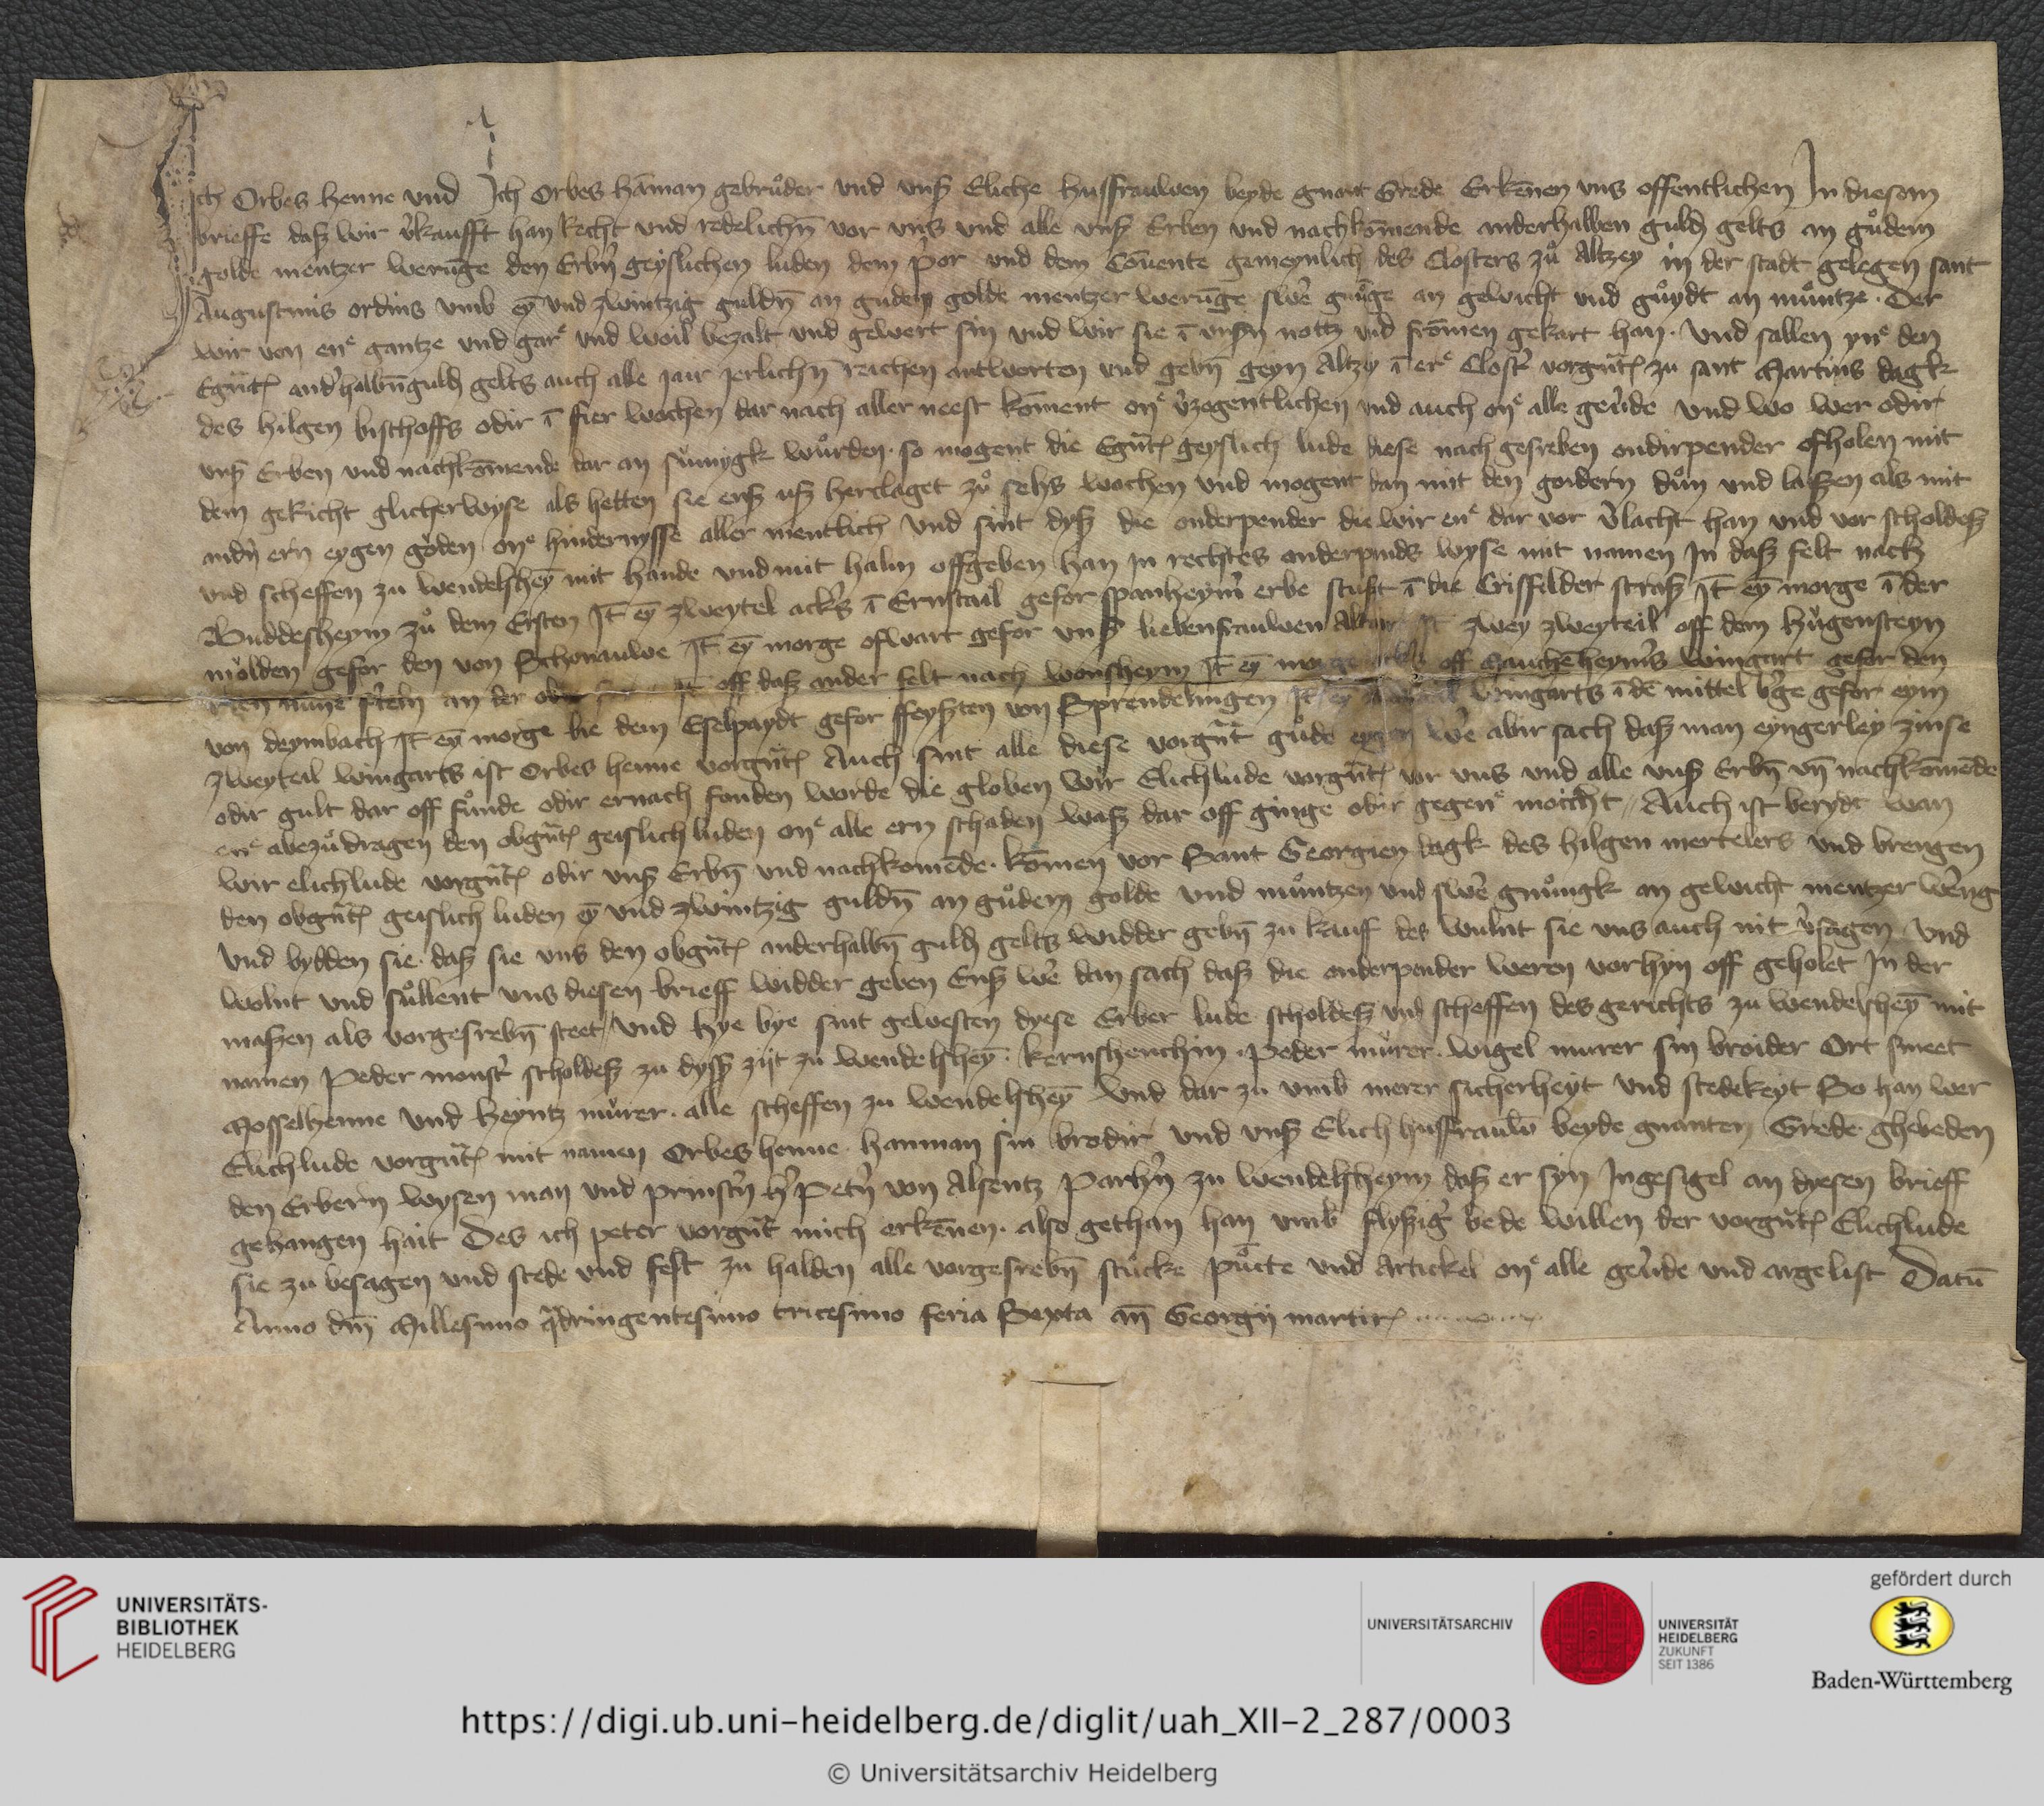 Ich Orbes Henne und Ich Orbes Hāman gebrůder und unß Eliche hussfrauwen beyde gnant Grede Erkēnen uns offentlichen In diesem
brieffe daß wir v̓kaufft han Recht und redelichn̄ vor uns und alle unß Erben und nachkōmende anderhalben guld gelts an gůdem
golde mentzer werūge den Erbn̓ geyslichen luden dem p̓or und dem Cōuente gemeynlich des Closters zů Altzey in der stadt gelegen sant
Augustinis ordins umb eȳ und zwintzig guldn̄ an gudem golde mentzer werūge swe̓ gnůge an gewicht und gůydt an můntze. Der
wir von ene gantze und gare und woil bezalt und gewert sin und wir sie ī unsn̓ nottz und frōmen gekart han. Und sallen yne den
Egn̄t and̓halbn̄ guld gelts auch alle jair jerlichn̄ reichen antworten und gebn̄ geyn Altzy ī ere Clost̓ vorgn̄t zu sant Martins dagk
des hilgen bischoffs odir ī fier wochen dar nach aller neest kōment one v̓zogentlichen und auch one alle gev̓de und wo wer odir
unß Erben und nachkōmende dar an sůmygk wůrden. so mogent die Egn̄t geyslich lude diese nach gesreben ondirpender ofholen mit
dem gericht glicherwyse als hetten sie enß uß herclaget zů sehs wochen und mogent dan mit den goidern důn und laßen als mit
andn̓ ern eygen gōden one hindernysse aller mentlich Und sint dyß die onderpender die wir ene dar vor v̓lacht han und vor scholdeß
und scheffen zu wendelsheȳ mit hande und mit halm offgeben han in rechtes onderpinds wyse mit namen In daß felt nach
Buddesheym zů dem Ersten It̄ eȳ zweytel ackers ī Ernstail gefor spanheym̓ erbe stußt ī die Crissfilder straß It̄ eȳ morge ī der
můlden gefor den von Schonauwe It̄ eȳ morge ofwart gefor unß liebenfrauwen Altar It̄ zwey zweyteil off dem Hůgensteyn
an der It̄ off daß ander felt nach wonsheym It̄ eȳ off wingart gefor den
von deymbach It̄ eȳ morge bie dem Eselpaydt gefor ffeyßten von Sprendelingen It̄ eȳ wingarts ī dē mittel b̓ge gefor eym
zweyteil wingarts ist Orbes henne vorgn̄t Auch sint alle diese vorgn̄t gůde eygen we̓ abir sach daß man eyngerley zinse
odir gult dar off fůnde odir ernach fonden worde die globen wir Elichlude vorgn̄t vor uns und alle unß Erbn̄ un̄ nachkōmēde
ene abezůdragen den obgn̄t geislich luden one alle ern schaden waß dar off ginge obir gegene moicht Auch ist berydt wan
wir elichlude vorgn̄t odir unß Erbn̄ und nachkomēde. kōmen vor Sant Georgien dagk des hilgen mertelers und brengen
den obgn̄t geislich luden eȳ und zwintzig guldn̄ an gůdem golde und můntzen und swe̓ gnůngk an gewicht mentzer we̓ng
Und bydden sie. daß sie uns den obgn̄t anderhalbn̄ guld gelts widder gebn̄ zu kauf des wulnt sie uns auch nit v̓sagen. Und
wolnt und sůllent uns diesen brieff widder geben Enß we̓ dan sach daß die onderpender weren vorhyn off geholet In der
maßen als vorgesrebn̄ steet, Und hye bye sint gewesten dyese Erber lude scholdeß und scheffen des gerichts zu wendelsheȳ mit
namen Peder monst̓ scholdeß zu dyß zijt zu wendelsheȳ. kernshenchin. Peder můrer. wigel murer sin broider Ort smeet
Mosselhenne und Heyntz můrer. alle scheffen zu wendelsheȳ Und dar zu umb merer sicherheyt und stedekeyt So han wer
Elichlude vorgn̄t mit namen Orbes henne. hanman sin brodir und unß Elich hussfrauw̄ beyde gnanten Grede. ghebeden
den Erbern wysen man und prinst̓n h̓ Pet̓n von Alsentz Parh̓n zu wendelsheym daß er syn Ingesigel an dyesen brieff
gehangen hait Des ich peter vorgn̄t mich erkēnen. also gethan han umb flyßig̓ bede willen der vorgn̄t Elichlude
sie zu besagen und stede und fest zu halden alle vorgesrebn̄ stůcke pūcte und Artickel one alle gev̓de und argelist Datū
Anno dn̄i Millesimo q̄dringentesimo tricesimo feria Sexta an̄ Georgij martir
UNIVERSITÄTS-
BIBLIOTHEK
HEIDELBERG
UNIVERSITÄTSARCHIV
UNIVERSITÄT
HEIDELBERG
ZUKUNFT
SEIT 1386
gefördert durch
Baden-Württemberg
https://digi.ub.uni-heidelberg.de/diglit/uah_XII-2_287/0003
© Universitätsarchiv Heidelberg